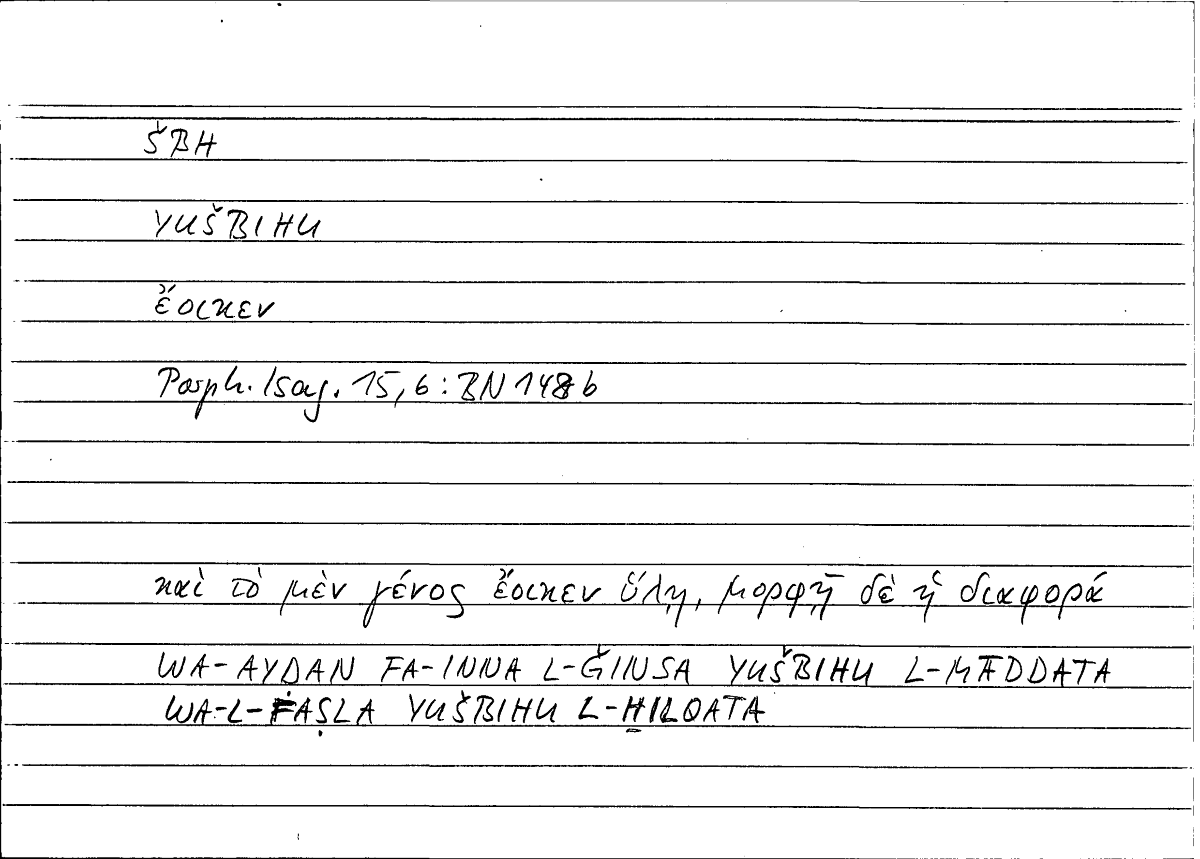 ŠBH
YUŠBIHU
ἔοικεν
Porph. Isag. 15, 6 : BN 148 b
καὶ τὸ μὲν γένος ἔοικεν ὕλῃ, μορφῇ δὲ ἡ διαφορά
WA-AYḌAN FA-INNA L-ǦINSA YUŠBIHU L-MĀDDATA
WA-L-FAṢLA YUŠBIHU L-ḪILQATA